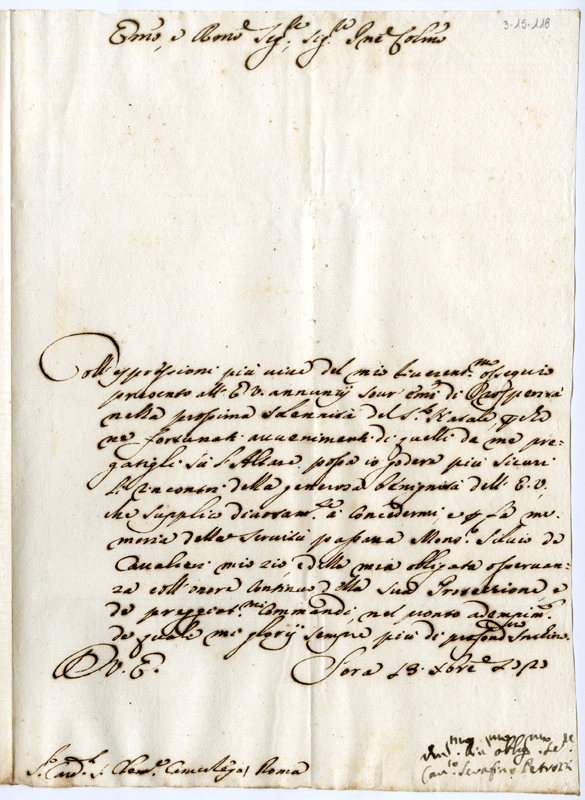 3-15-118
Emo, e Rmo Sigre, Sigre Pne Colmo
Coll'espressioni più vive del mio riverentmo ossequio
presento all'E.V. annunzij sour'Emi di Prosperità
nella prossima solennità del Sto Natale
ne fortunati avvenimenti di quelli da me pre-
gatigli su l'Altare, possa io godere più sicuri
gl'incontri della generosa benignità dell'E.V.,
che supplico divotamte à concedermi, e la me-
moria della Servitù passata Monsr Silvio de
Cavalieri mio zio, e della mia obligata osservan-
za coll'onore continuo della sua Protezzione e
de preggiatmi Commandi, nel ponto adempimto
de quali mi glorij sempre più di profondmo
D.V.E. Sora 13. Xbre
Sr Card. S. Clemte Camerlego, Roma
Devmo obligmo
Serafino Petrozzi